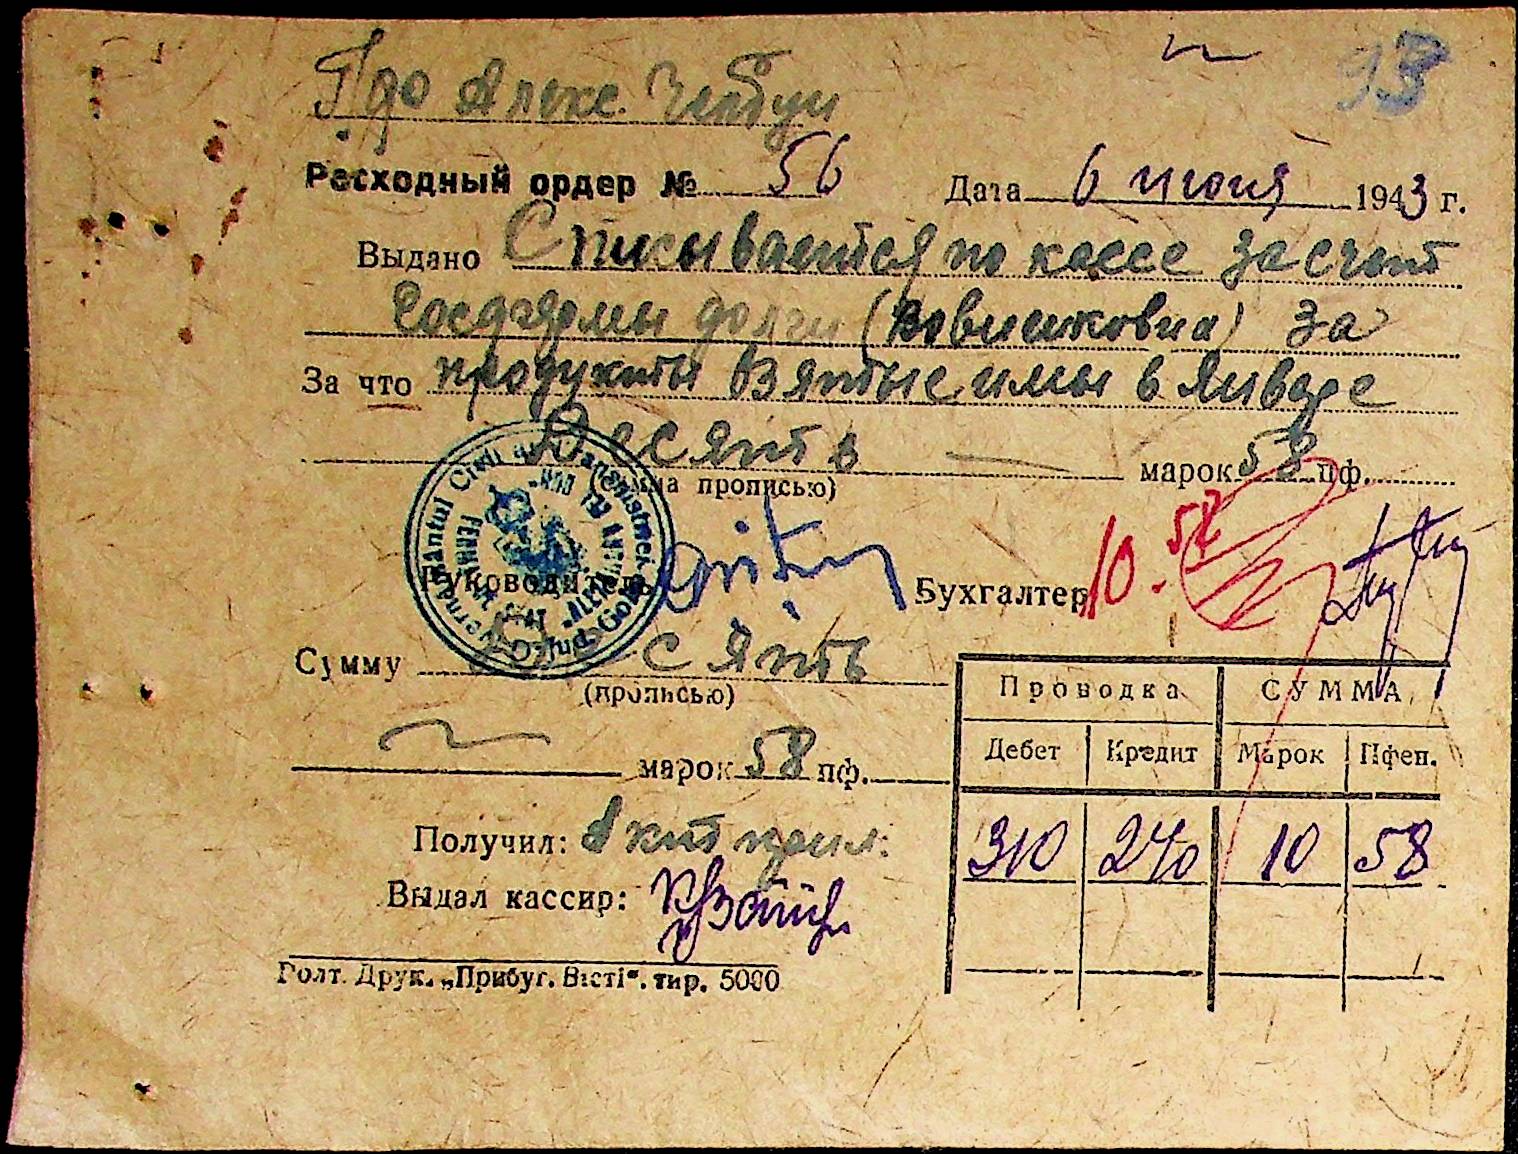 93
Гдо Алекс.
Расходный ордер № 56 Дата 6 июня 1943 г.
Выдано Списывается по кассе за счет
Госдфермы долги за
За что продукты взятые ими в Январе
Десять — марок 58 пф.
(сумма прописью)
Руководитель Бухгалтер 10.58
Сумму Десять
(прописью)
марок 58 пф.
Проводка СУММА
Дебет Кредит Марок Пфен.
310 240 10 58
Получил: Акт прил.
Выдал кассир:
Голт. Друк. „Прибуг. Вісті“. тир. 5000